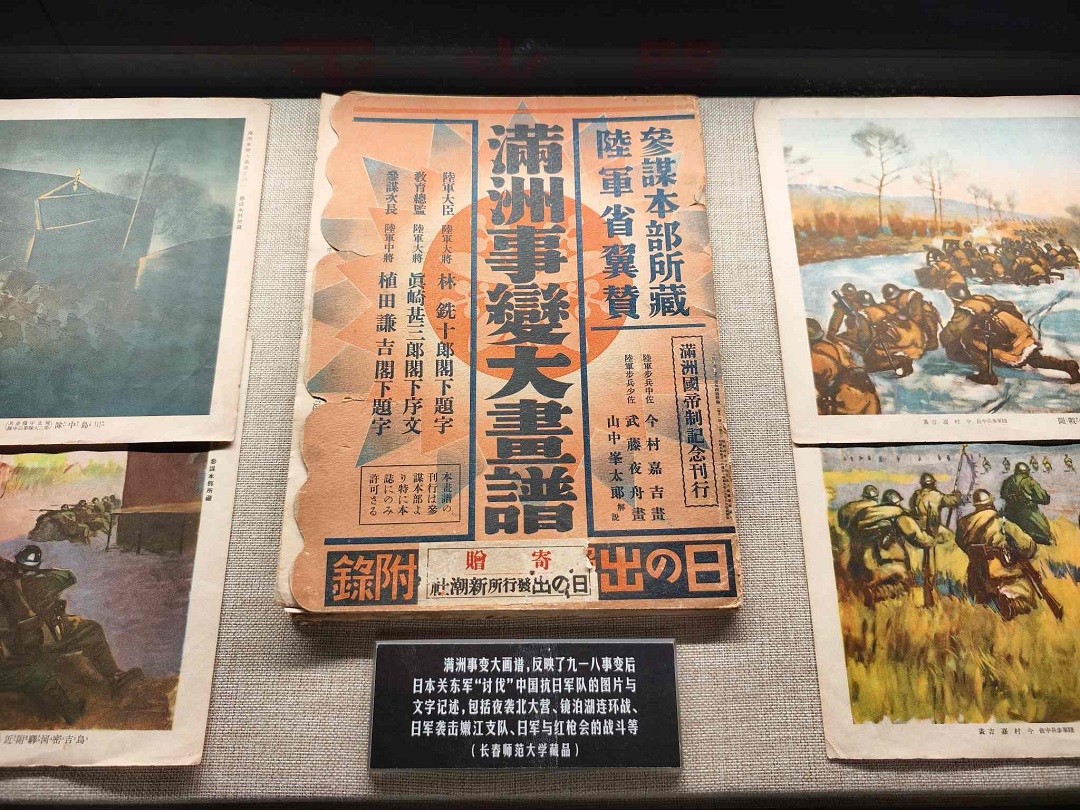 參謀本部所藏
陸軍省翼贊
滿洲國帝制記念刊行
陸軍步兵中佐 今村嘉吉畫
陸軍步兵少佐 武藤夜舟畫
山中峯太郎 解説
滿洲事變大畫譜
陸軍大臣 陸軍大將 林 銑十郎閣下題字
教育總監 陸軍大將 眞崎甚三郎閣下序文
參謀次長 陸軍中將 植田謙吉閣下題字
本畫譜の
刊行は參
謀本部よ
り特に本
誌にのみ
許可さる
日の出
附錄
寄贈
日の出發行所新潮社
參謀本部所藏
川島中隊
島吉密河驛附近
陸軍步兵中佐 今村嘉吉畫
陸軍步兵中佐 今村嘉吉畫
满洲事变大画谱，反映了九一八事变后
日本关东军“讨伐”中国抗日军队的图片与
文字记述，包括夜袭北大营、镜泊湖连环战、
日军袭击嫩江支队、日军与红枪会的战斗等
（长春师范大学藏品）